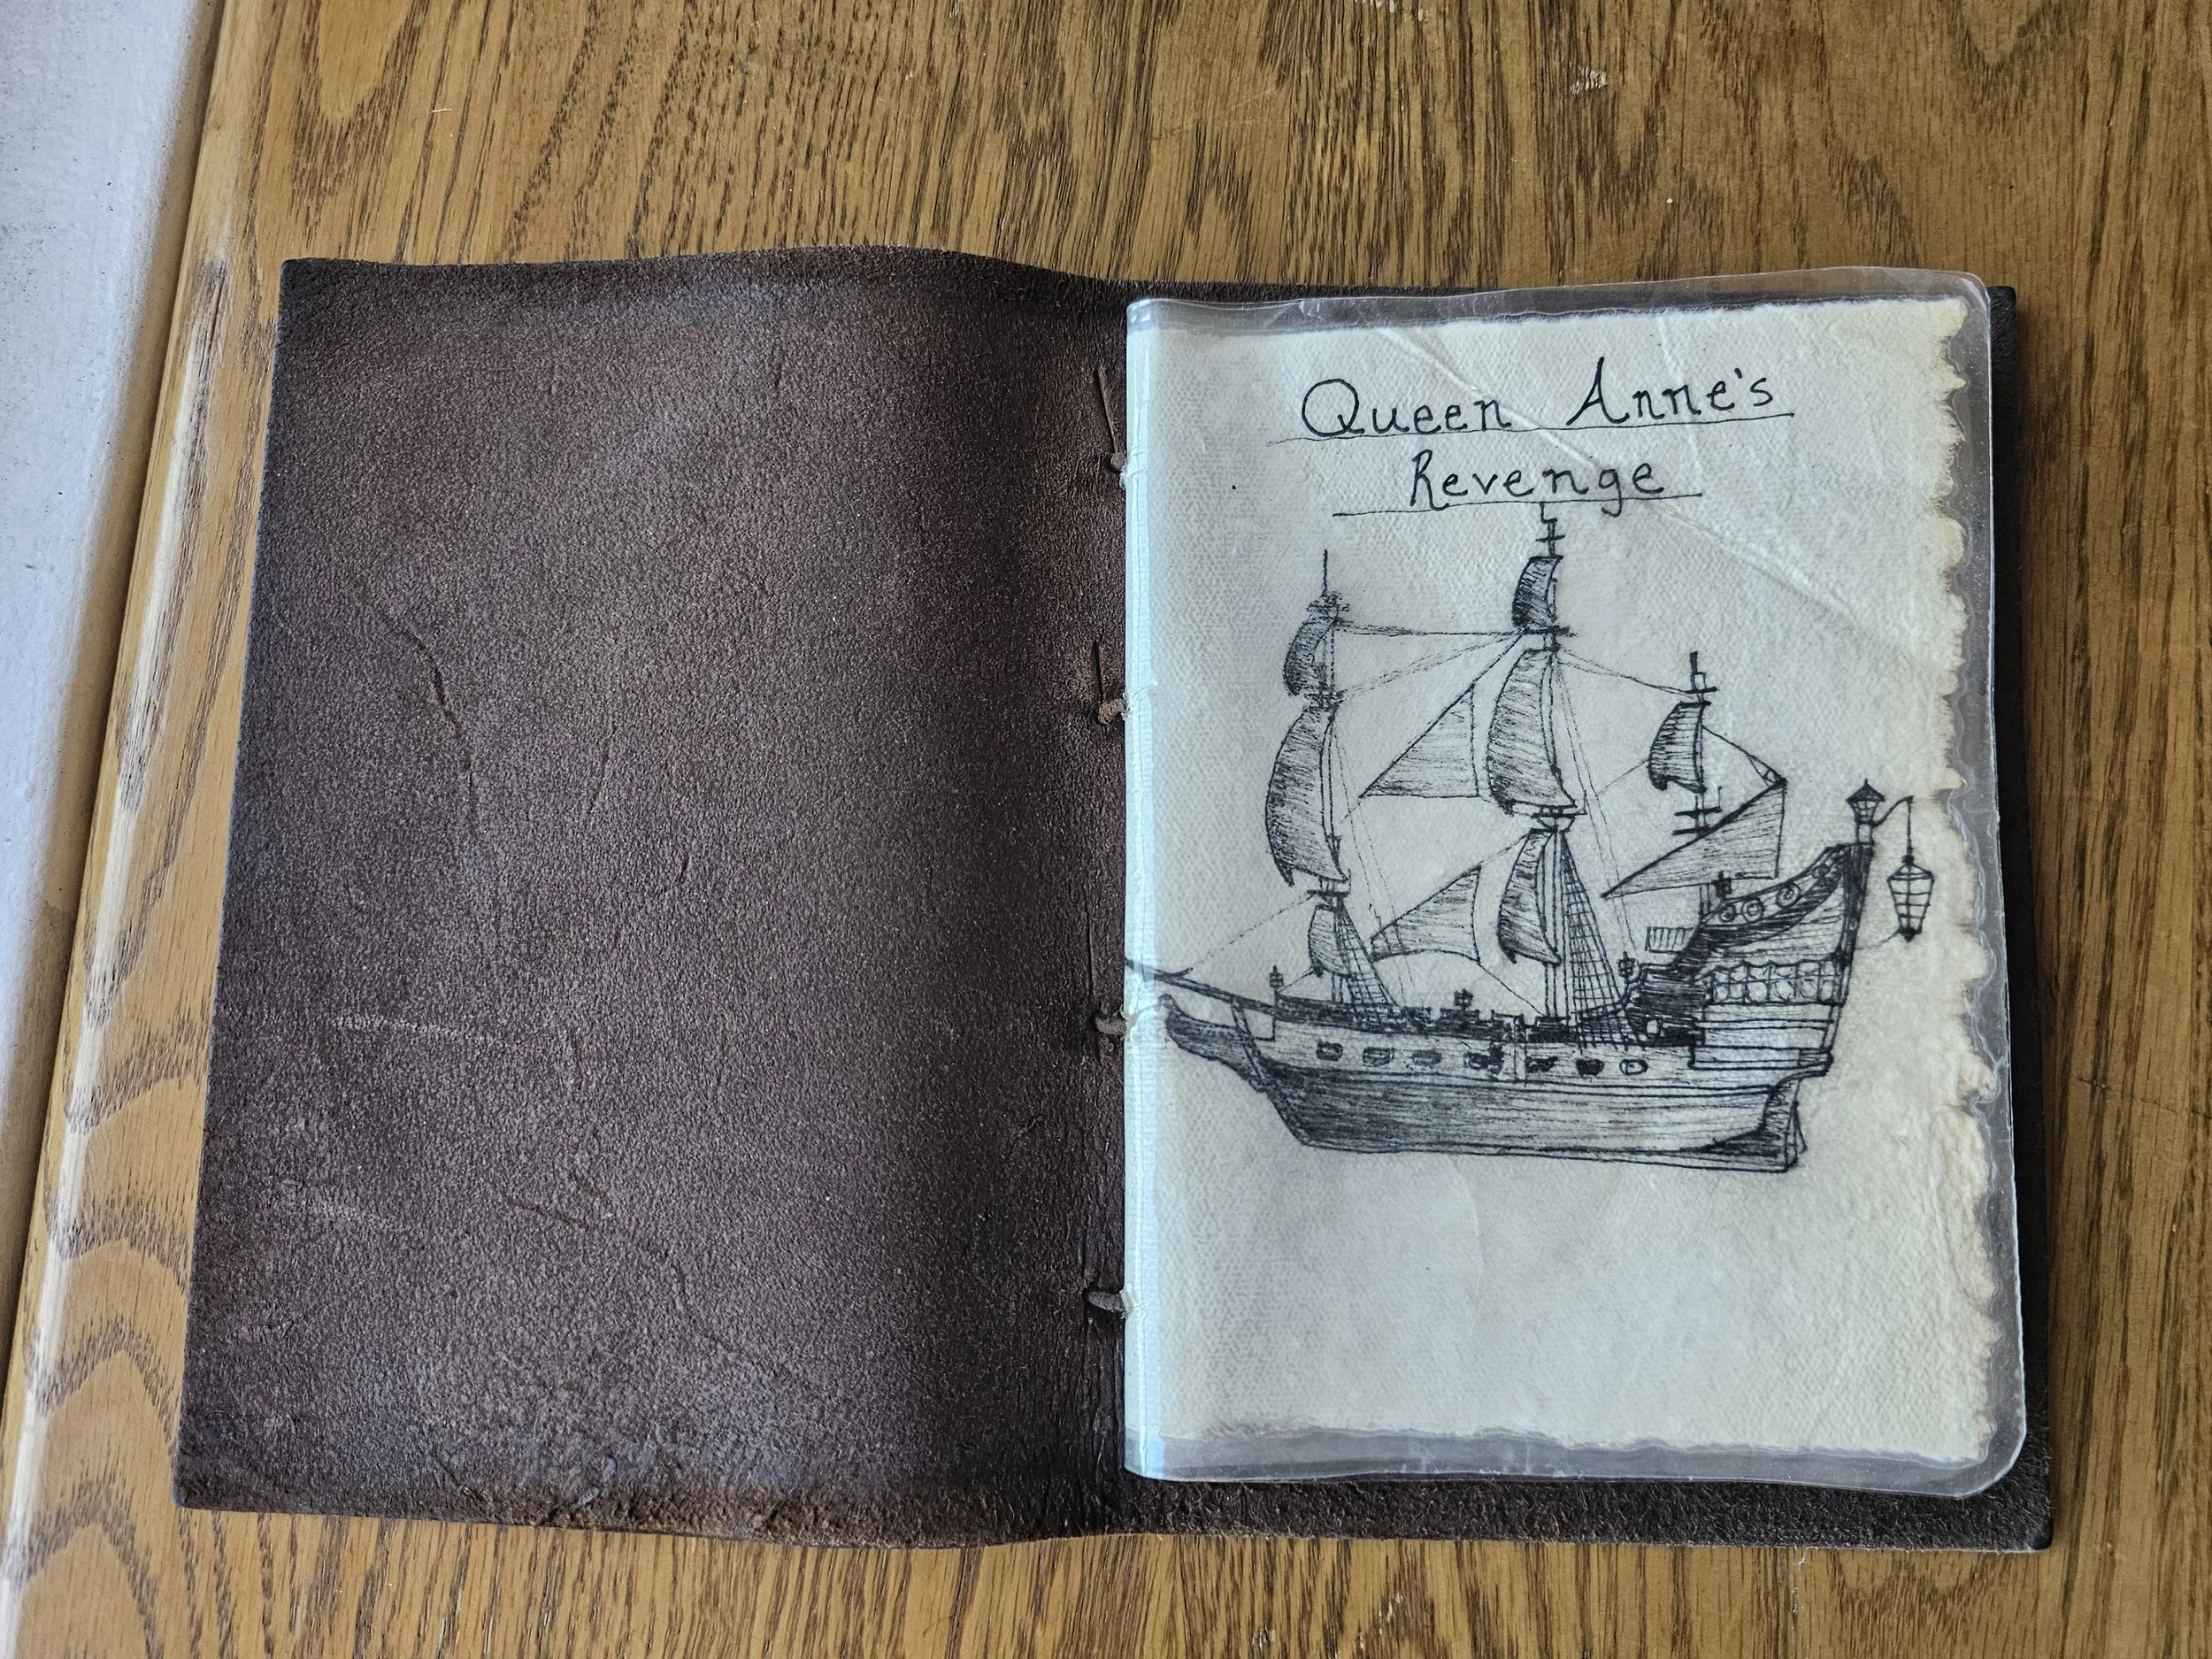 Queen Anne's
Revenge